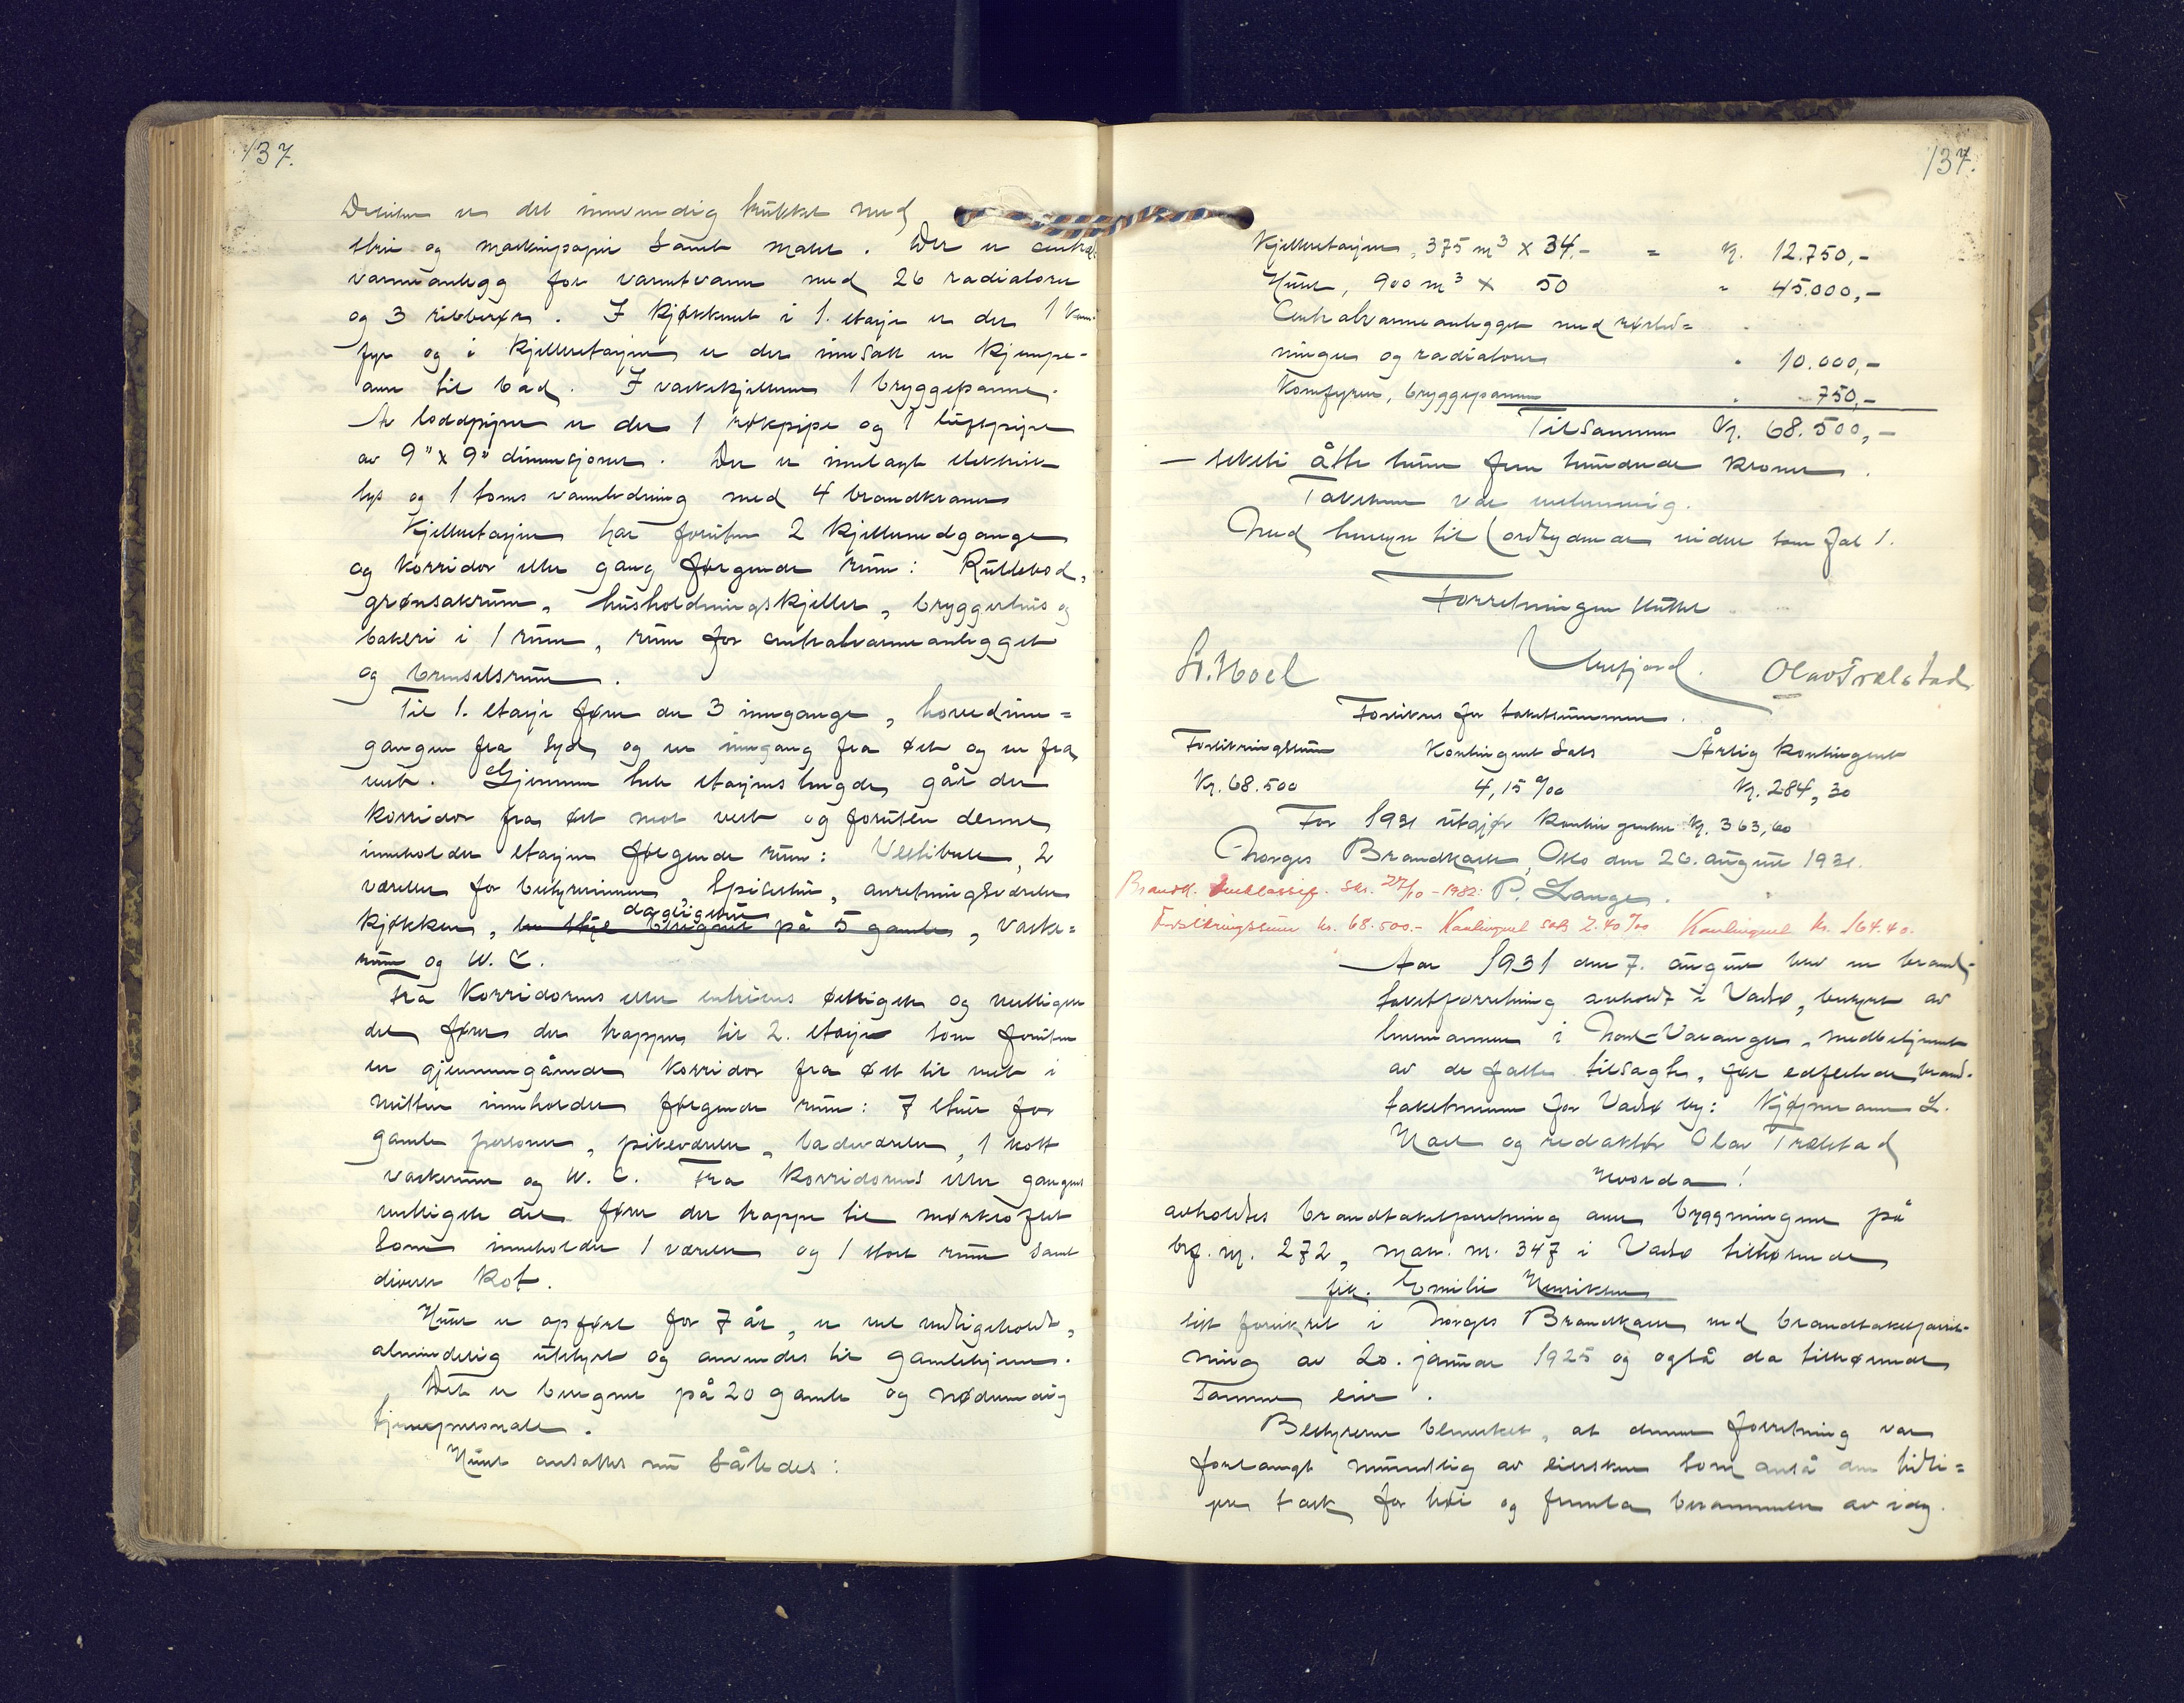 137.
Desuten er det innvendig trukket med
strie og maskinpapir samt malt. Der er central
varmeanlegg for varmtvann med 26 radiatorer
og 3 ribberør. I kjøkkenet i 1. etasje er der 1 kom-
fyr og i kjelleretasjen er der innsatt en kjempe-
ovn til bad. I vaskekjelleren 1 bryggepanne.
Av loddpiper er der 1 røkpipe og 1 luftepipe
av 9" x 9" dimensjoner. Der er innlagt elektrisk
lys og 1 toms vannledning med 4 brandkraner
Kjelleretasjen har foruten 2 kjellernedgange
og korridor eller gang følgende rum: Rullebod,
grønsakrum, husholdningskjeller, bryggerhus og
bakeri i 1 rum, rum for centralvarmeanlegget
og brenselsrum.
Til 1. etasje fører der 3 innganger, hovedinn=
gangen fra syd og en inngang fra øst og en fra
vest. Gjennem hele etasjens lengde går der
korridor fra øst mot vest og foruten denne
inneholder etasjen følgende rum: Vestibule, 2
værelser for bestyrerinnen, spisestue, anretningsværelse
dagligstue
kjøkken, beregnet på 5 gamle, vaske=
rum og W. C.
Fra korridorens eller entreens østligste og vestligste
del fører der trapper til 2. etasje som foruten
en gjennemgående korridor fra øst til vest i
midten inneholder følgende rum: 7 stuer for
gamle personer, pikeværelse, badeværelse, 1 kott
vaskerum og W. C. Fra korridorens eller gangens
vestligste del fører der trappe til mørkloftet
som inneholder 1 værelse og 1 stort rum samt
diverse kot.
Huset er opført for 7 år, er vel vedlikeholdt,
almindelig utstyrt og anvendes til gamlehjem.
Det er beregnet på 20 gamle og nødvendig
tjenerpersonale.
Huset ansattes nu således:
137.
Kjelleretasjen, 375 m³ x 34,- = Kr. 12.750,-
Huset, 900 m³ x 50 " 45.000,-
Centralvarmeanlegget med rørled=
ninger og radiatorer " 10.000,-
Komfyren, bryggepannen " 750,-
Tilsammen Kr. 68.500,-
— seksti åtte tusen fem hundrede kroner.
Taksten var enstemmig.
Med hensyn til lordlydende videre som fol 1.
Forretningen sluttet
L. Noel Olav Trælstad
Forsikres for takstsummen.
Forsikringssum Kontingent sats Årlig kontingent
Kr. 68.500 4,15 ‰ Kr. 284,30
For 1931 utgjør kontingenten Kr. 363,60
Norges Brandkasse, Oslo den 26. august 1931.
P. Lange.
Brandt. omklassif. skr. 27/10-1932:
Forsikringssum kr. 68.500.- Kontingent sats 2.40 ‰ Kontingent kr. 164.40.
Aar 1931 den 7. august blev en brand-
takstforretning avholdt i Vadsø, bestyret av
lensmannen i Nord-Varanger, medbetjent
av de faste tilsagte, før edfestede brand-
takstmenn for Vadsø by: Kjøpmann L.
Noel og redaktør Olav Trælstad
Hvorda!
avholdtes brandtakstforretning over bygningene på
brf. nr. 272, matr. nr. 347 i Vadsø tilhørende
frk. Emilie Henriksen
sist forsikret i Norges Brandkasse ved brandtakstforret-
ning av 20. januar 1925 og også da tilhørende
samme eier.
Bestyreren bemerket, at denne forretning var
forlangt mundtlig av eiersken som anså den tidli=
gere takst for høi og fremla berammelse av idag.